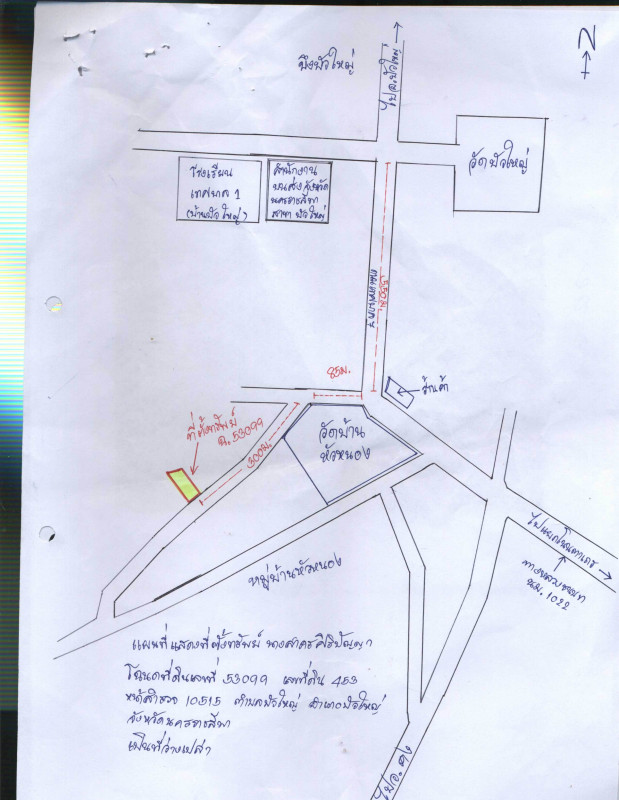 บึงบัวใหญ่
ไป อ.บัวใหญ่
N
โรงเรียน
เทศบาล 1
(บ้านบัวใหญ่)
สำนักงาน
ขนส่งจังหวัด
นครราชสีมา
สาขาบัวใหญ่
วัดบัวใหญ่
85ม.
ร้านค้า
ที่ตั้งทรัพย์
ฉ.53099
300ม.
วัดบ้าน
หัวหนอง
หมู่บ้านหัวหนอง
ทางหลวงชนบท
นม.1022
แผนที่แสดงที่ตั้งทรัพย์ นางสาคร ศิริปัญญา
โฉนดที่ดินเลขที่ 53099 เลขที่ดิน 453
หน้าสำรวจ 10515 ตำบลบัวใหญ่ อำเภอบัวใหญ่
จังหวัดนครราชสีมา
เป็นที่ว่างเปล่า
ไป อ.คง